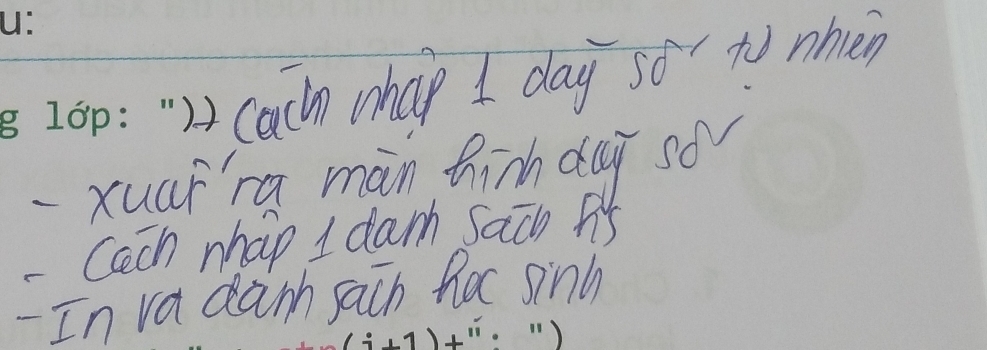 u:
g lớp: ")) Cách nhập 1 dãy số tự nhiên
- xuất ra màn hình dãy số
- Cách nhập 1 danh sách hs
- In ra danh sách học sinh
(i+1)+": ")